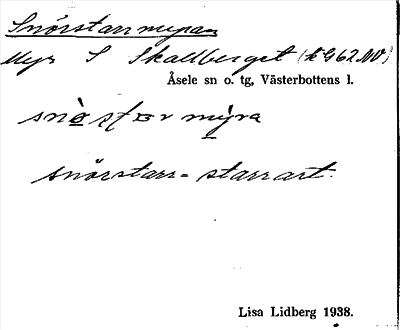 Snörstarrmyran
Myr S Skallberget (k G62 NV)
Åsele sn o. tg, Västerbottens l.
snörstarr = starrart.
Lisa Lidberg 1938.